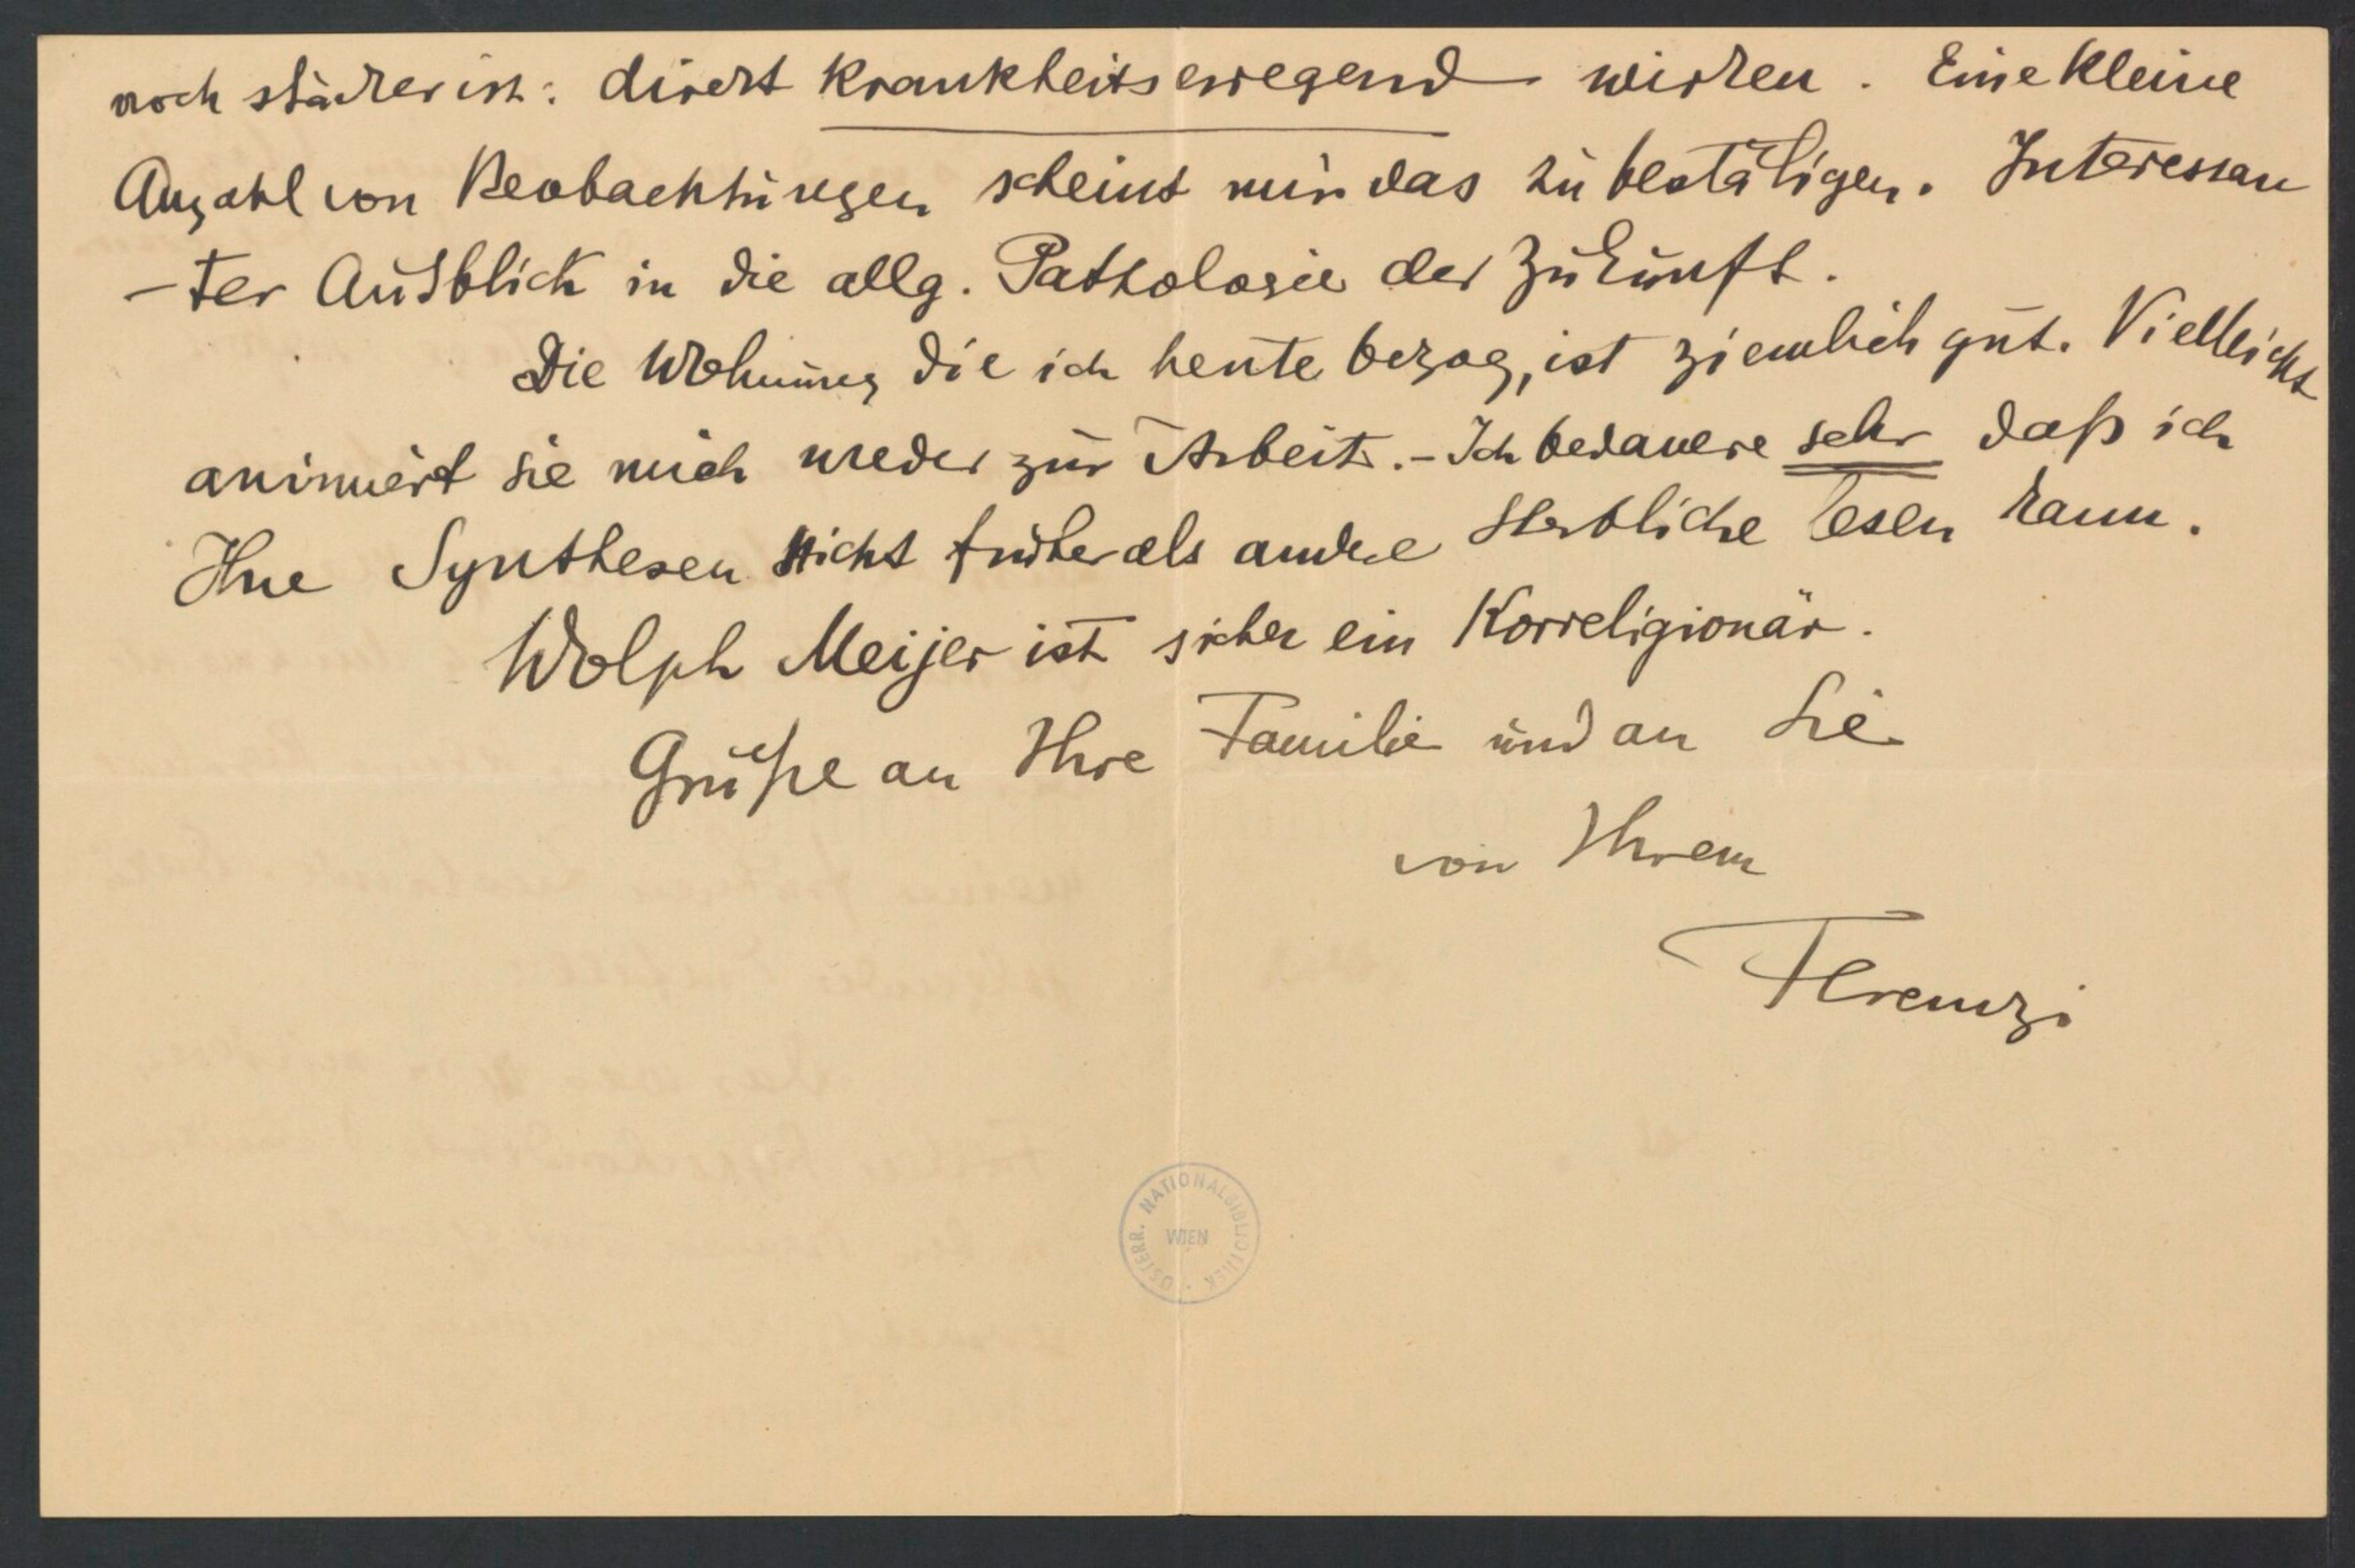 noch stärker ist: direkt krankheitserregend wirken. Eine kleine
Anzahl von Beobachtungen scheint mir das zu bestätigen. Interessan
-ter Ausblick in die allg. Pathologie der Zukunft.
Die Wohnung die ich heute bezog, ist ziemlich gut. Vielleicht
animiert sie mich wieder zur Arbeit. - Ich bedauere sehr daß ich
Ihre Synthesen nicht früher als andere Sterbliche lesen kann.
Wolph Meijer ist sicher ein Korreligionär.
Grüße an Ihre Familie und an Sie
von Ihrem
Ferenczi
ÖSTERR. NATIONALBIBLIOTHEK
WIEN